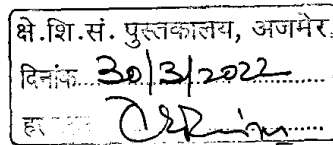 क्षे.शि.सं. पुस्तकालय, अजमेर
दिनांक 30/3/2022
ह